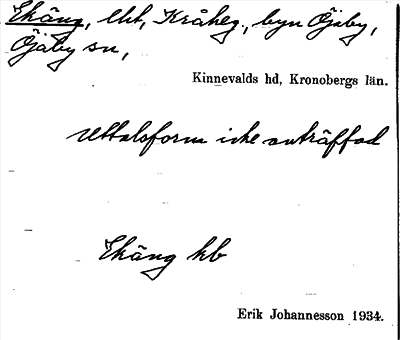 Ekäng, lht, Kråheg., byn Öjaby,
Öjaby sn,
Kinnevalds hd, Kronobergs län.
uttalsform icke anträffad
Ekäng kb
Erik Johannesson 1934.